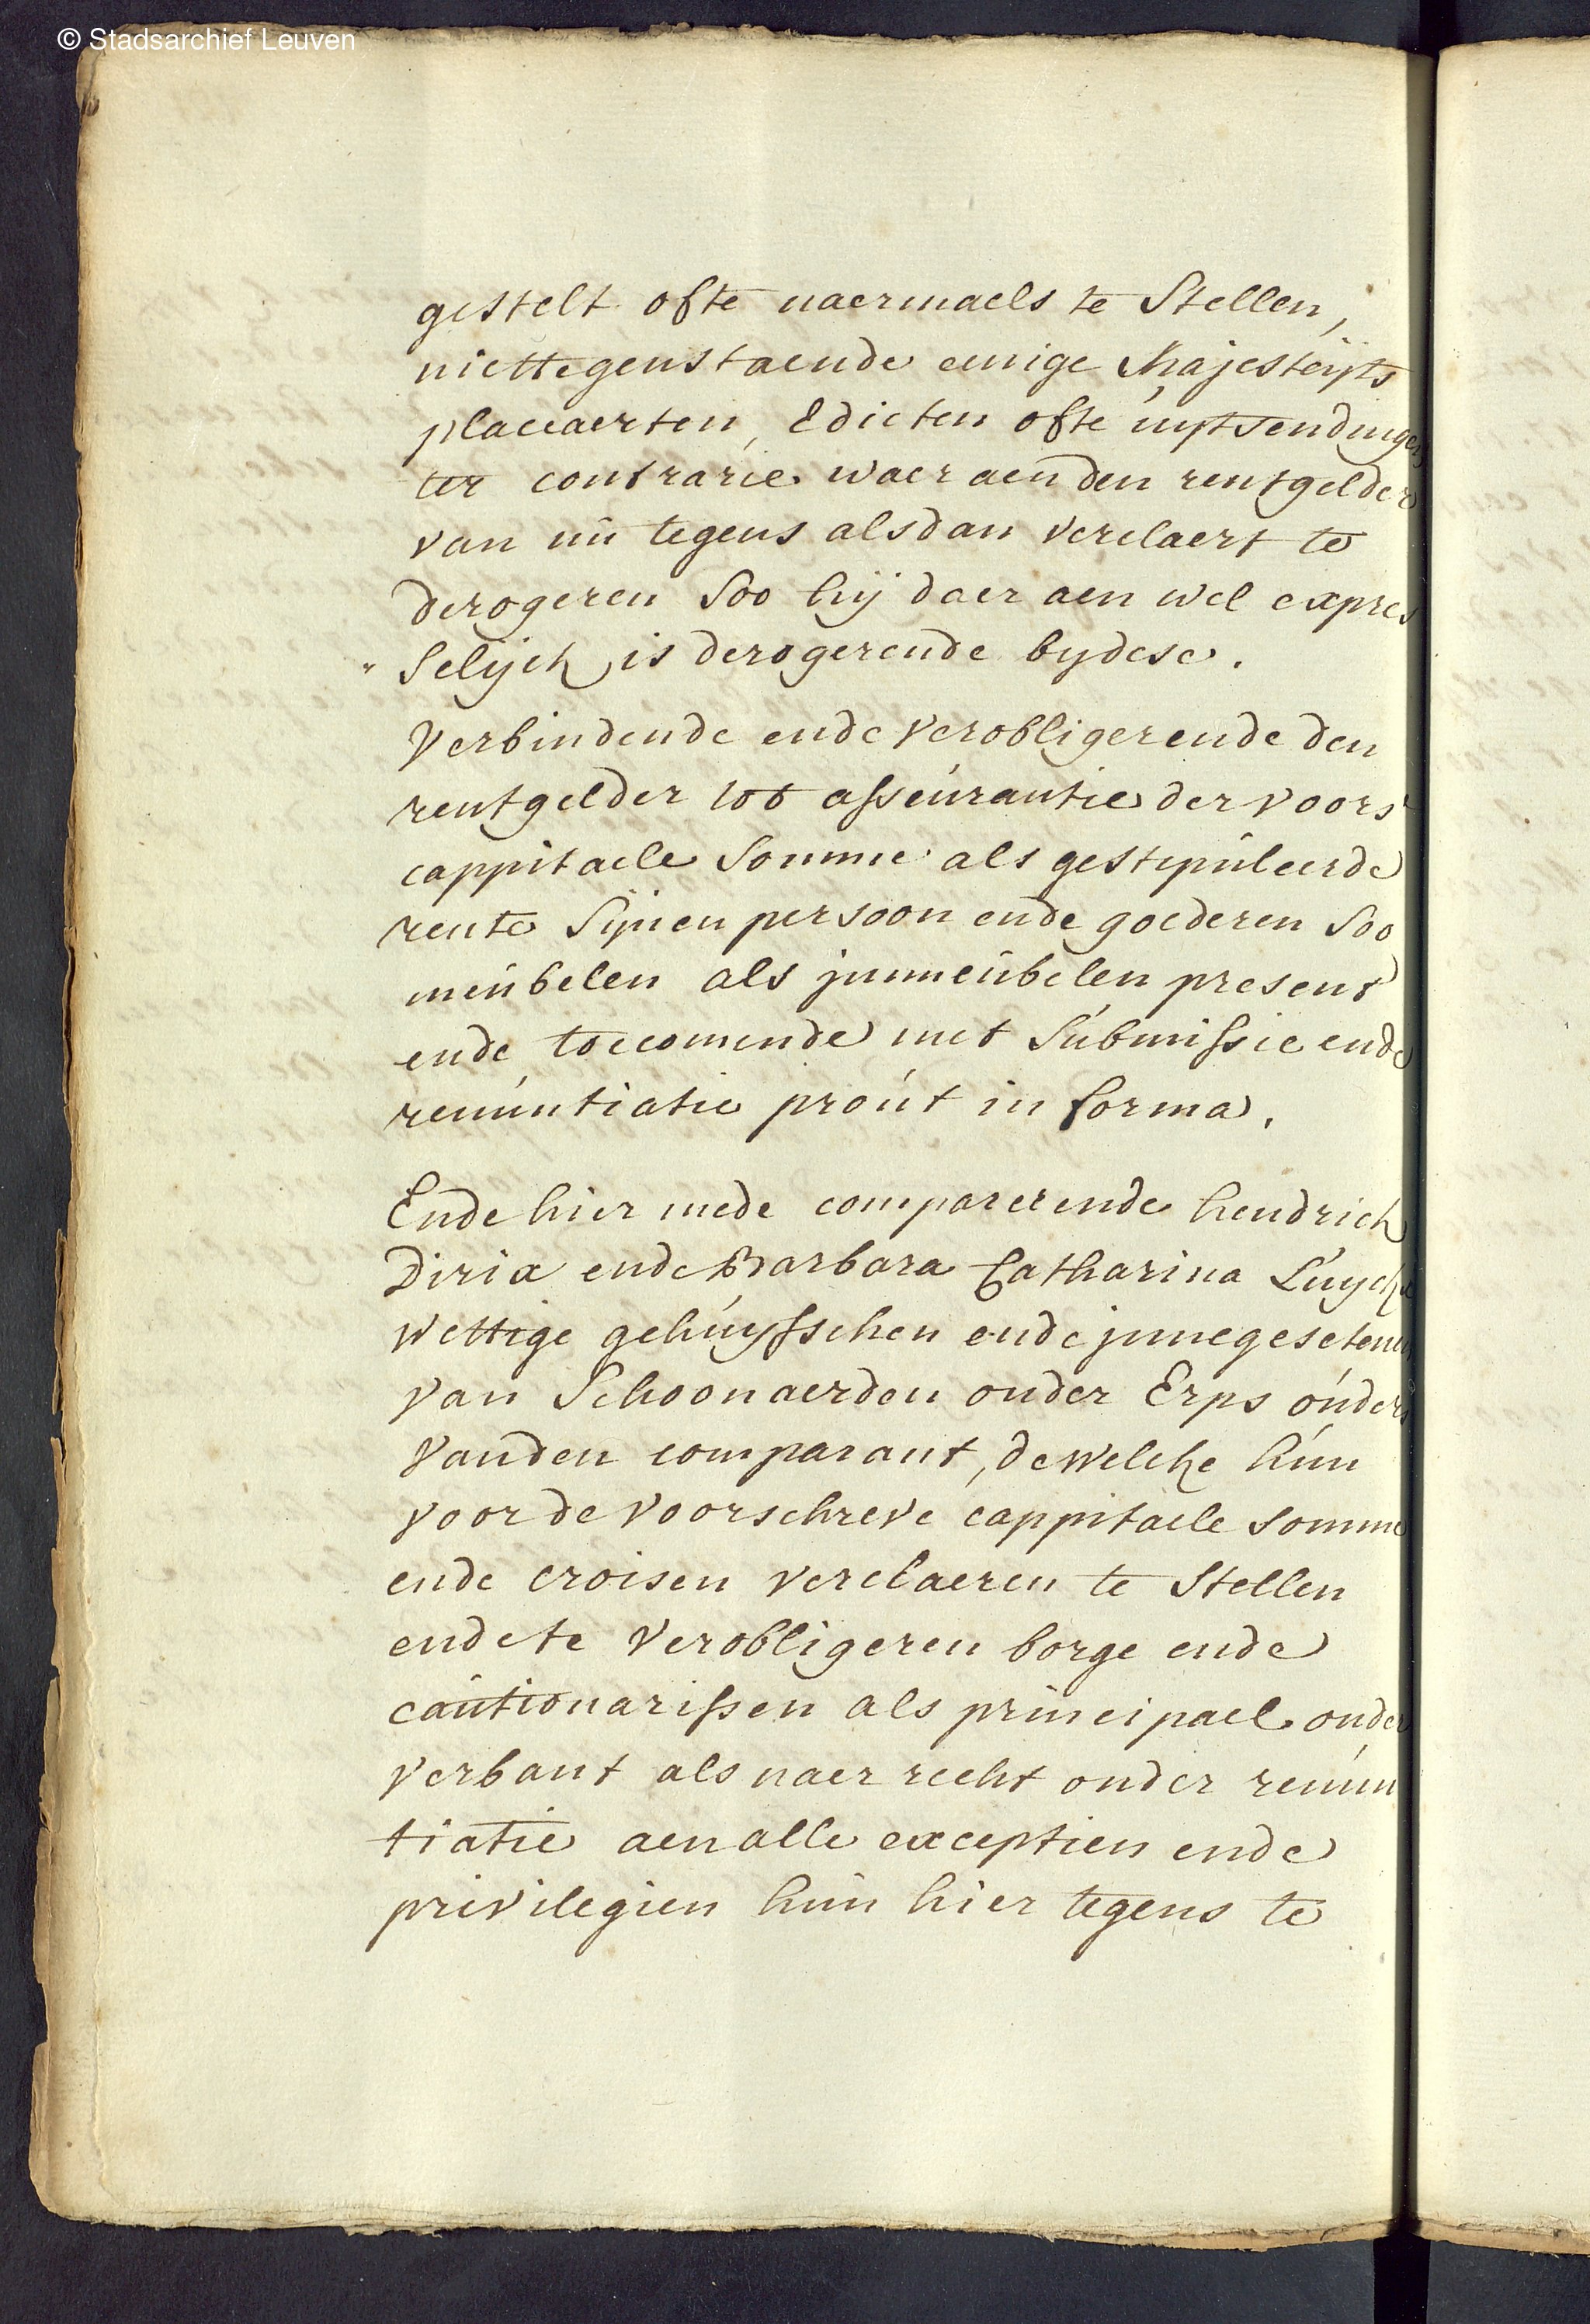 © Stadsarchief Leuven
gestelt ofte naermaels te Stellen,
niettegenstaende eenige Majesteijts
placcaerten, Edicten ofte uijtsendinge
ter contrarie waer aen den rentgelder
van nu tegens alsdan verclaert te
derogeren Soo hij daer aen wel expres
Selijck is derogerende bijdese.
Verbindende ende verobligerende den
rentgelder tot asseurantie der voors
cappitaele Somme als gestipuleerde
rente Sijnen persoon ende goederen Soo
meubelen als jmmeubelen present
ende toecomende met Submissie ende
renuntiatie prout in forma.
Ende hier mede comparerende hendrick
Dirix ende Barbara Catharina Luyckx
Wettige gehuysschen ende jnnegesetenen
van Schoonaerden onder Erps ouders
vanden comparant, dewelcke hun
voor de voorschreve cappitaele somme
ende croisen verclaeren te Stellen
ende te verobligeren borge ende
cautionarissen als principael onder
verbant als naer recht onder renun
tiatie aen alle exceptien ende
privilegien hun hier tegens te